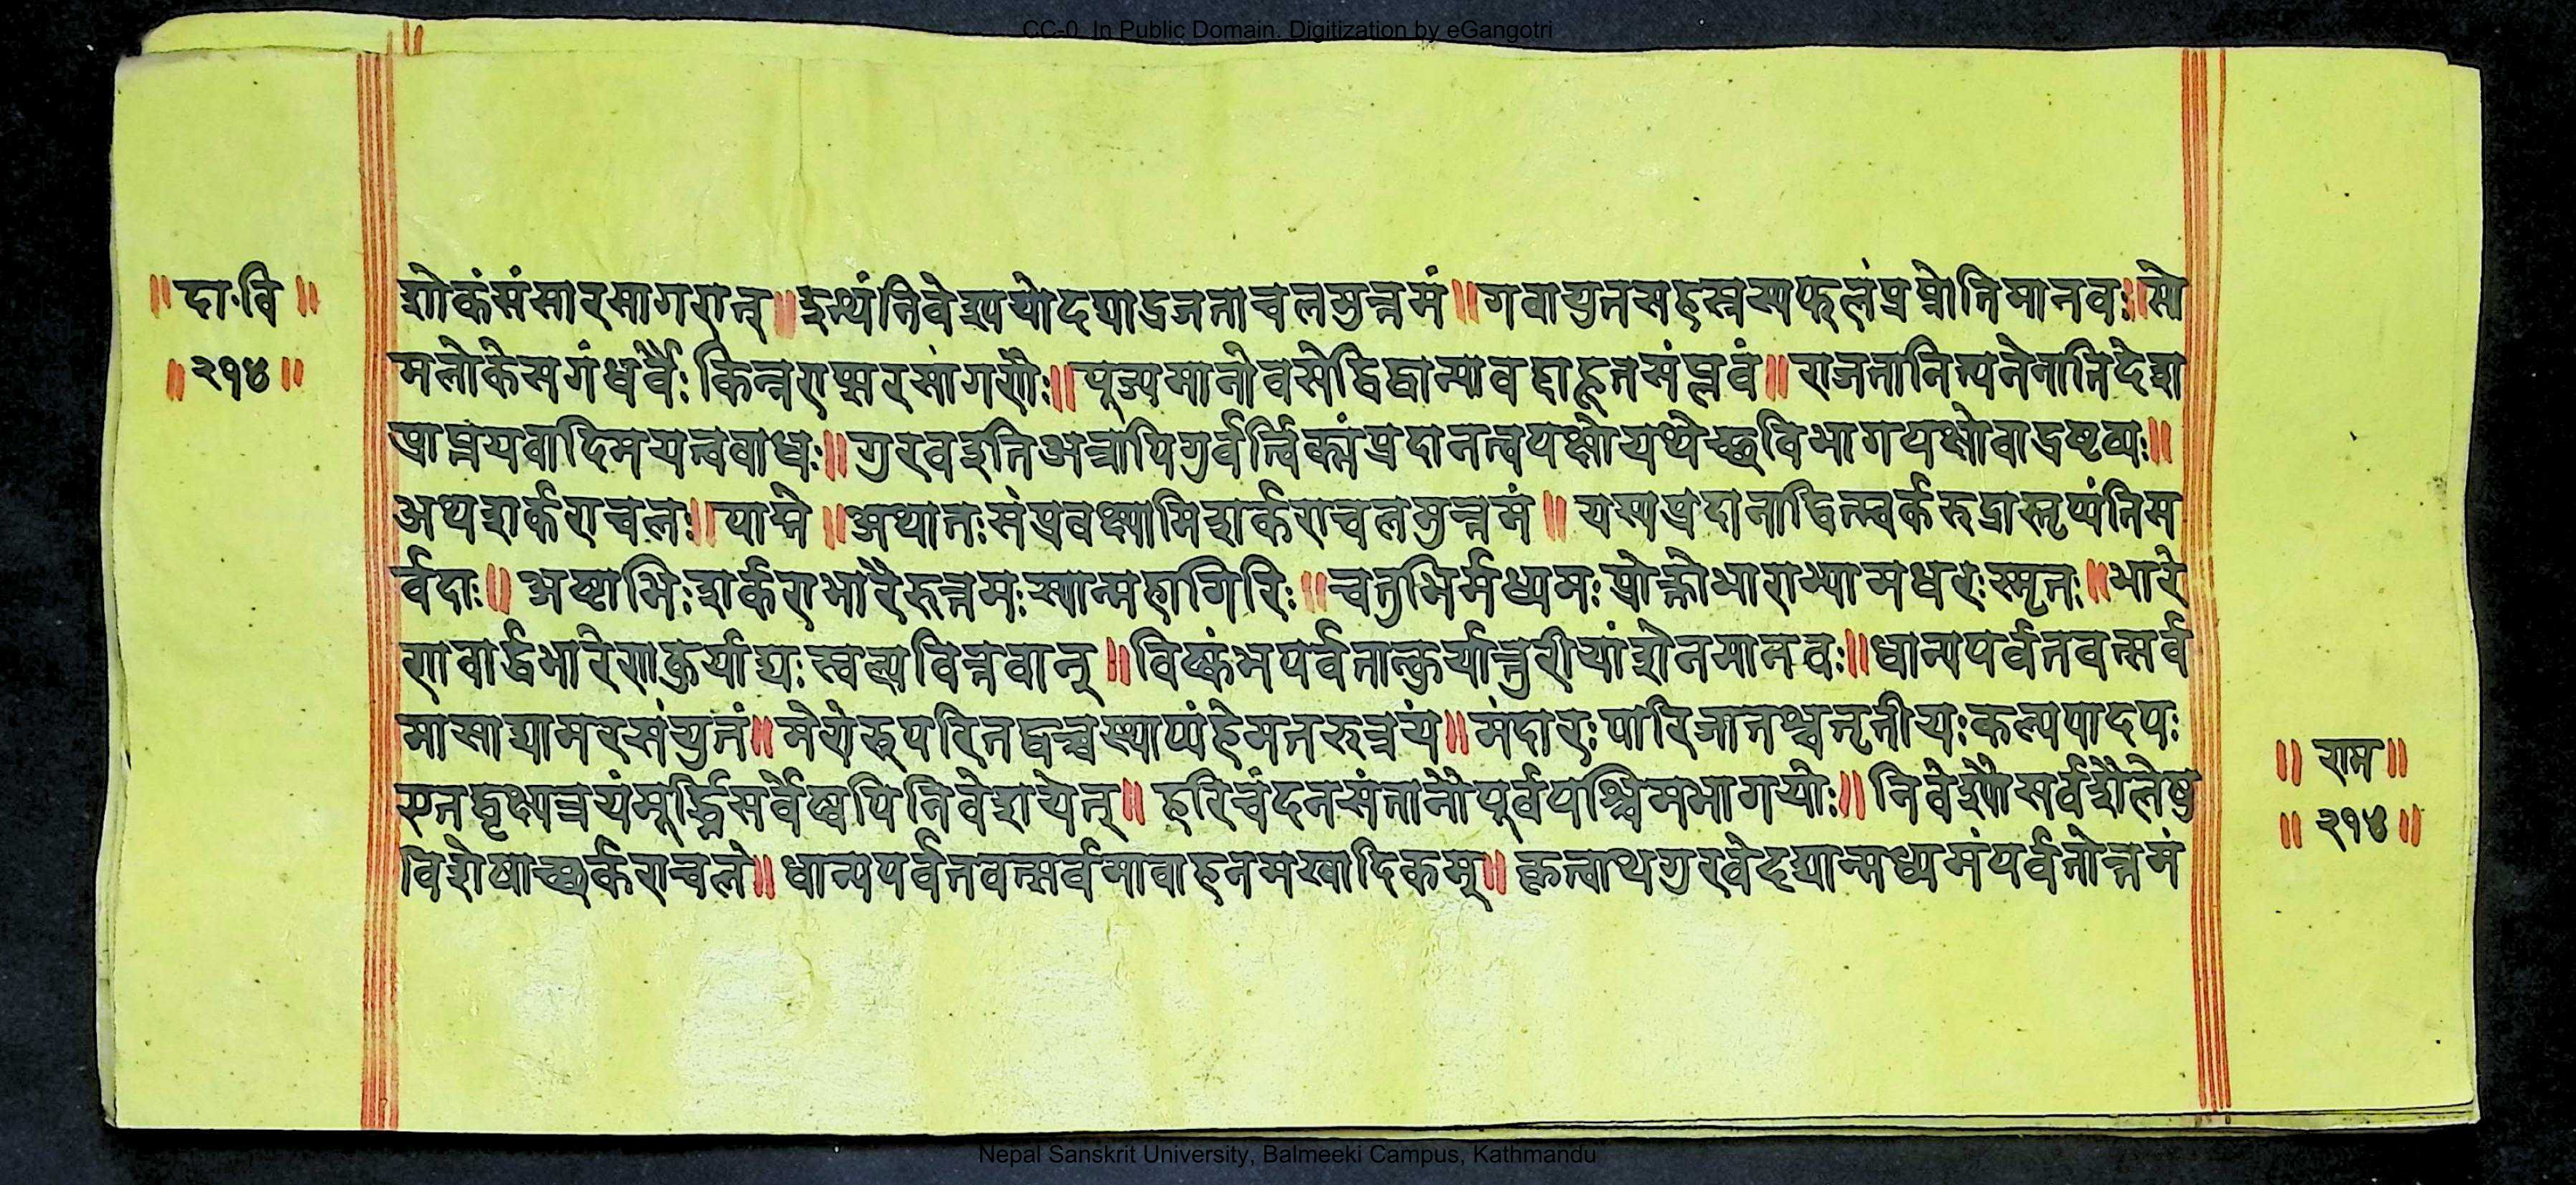 CC-0. In Public Domain. Digitization by eGangotri
॥दा॰वि॥
॥२१४॥
शोकसंसारसागरात्॥इत्थंनिवेश्ययोदद्याद्रजताचलमुत्तमं॥गवायुतसहस्रस्यफलंप्रप्नोतिमानवः॥सो
मलोकेसगंधर्वैः किन्नराप्सरसांगणैः॥पूज्यमानोवसेद्विद्वान्यावदाहूतसंप्लवं॥राजतानित्यनेनानिदेश
प्राप्नयवादिमयत्ववाधः॥गुरवइतिअत्रापिगुर्वर्त्विक्संप्रदानत्वपक्षोयथेच्छविभागपक्षोवाद्रष्टव्यः॥
अथशर्कराचलः॥पाद्मे॥अथातःसंप्रवक्ष्यामिशर्कराचलमुत्तमं॥यस्यप्रदानाद्विष्ण्वर्करुद्रास्तृप्यंतिस
र्वदाः॥अष्टाभिःशर्कराभारैरुत्तमःस्यान्महागिरिः॥चतुर्भिर्मध्यमःप्रोक्तोभाराभ्यामधरःस्मृतः॥भारे
णवार्द्धभारेणकुर्याद्यःस्वल्पवित्तवान्॥विष्कंभपर्वतान्कुर्यात्तुरीयांशेनमानवः॥धान्यपर्वतवत्सर्व
मासाद्यामरसंयुतं॥मेरोरुपरितद्वच्चस्थाप्यंहेमतरुत्रयं॥मंदारःपारिजातश्चतृतीयःकल्पपादपः
एतद्वृक्षत्रयंमूर्द्ध्निसर्वेष्वपिनिवेशयेत्॥हरिचंदनसंतानौपूर्वपश्चिमभागयोः॥निवेश्यौसर्वशैलेषु
विशेषाच्छर्कराचले॥धान्यपर्वतवत्सर्वमावाहनमखादिकम्॥कृत्वाथगुरवेदद्यान्मध्यमंपर्वतोत्तमं
॥राम॥
॥२१४॥
Nepal Sanskrit University, Balmeeki Campus, Kathmandu